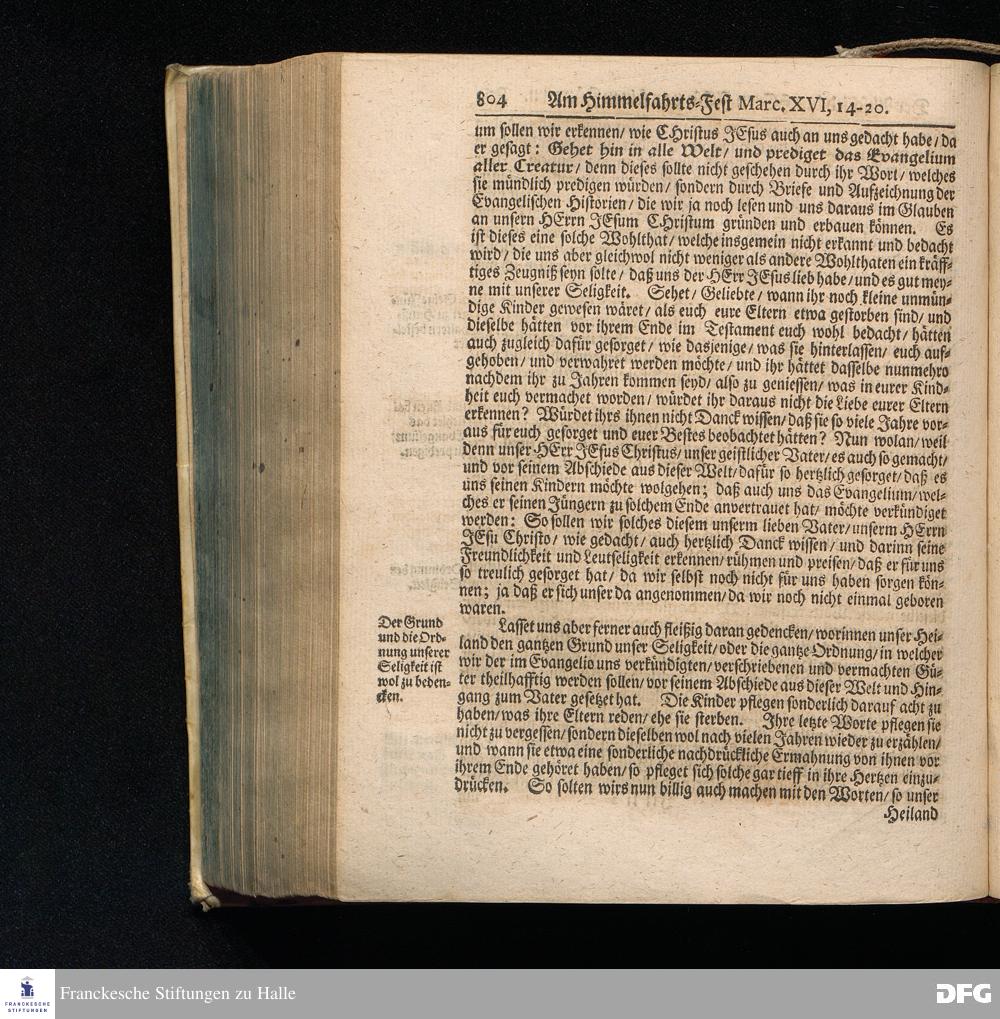 804 Am Himmelfahrts-Fest Marc. XVI, 14-20.
um sollen wir erkennen/ wie CHristus JEsus auch an uns gedacht habe/ da
er gesagt: Gehet hin in alle Welt/ und prediget das Evangelium
aller Creatur/ denn dieses sollte nicht geschehen durch ihr Wort/ welches
sie mündlich predigen würden/ sondern durch Briefe und Aufzeichnung der
Evangelischen Historien/ die wir ja noch lesen und uns daraus im Glauben
an unsern HErrn JEsum CHristum gründen und erbauen können. Es
ist dieses eine solche Wohlthat/ welche insgemein nicht erkannt und bedacht
wird/ die uns aber gleichwol nicht weniger als andere Wohlthaten ein kräff-
tiges Zeugniß seyn solte/ daß uns der HErr JEsus lieb habe/ und es gut mey-
ne mit unserer Seligkeit. Sehet/ Geliebte/ wann ihr noch kleine unmün-
dige Kinder gewesen wäret/ als euch eure Eltern etwa gestorben sind/ und
dieselbe hätten vor ihrem Ende im Testament euch wohl bedacht/ hätten
auch zugleich dafür gesorget/ wie dasjenige/ was sie hinterlassen/ euch auf-
gehoben/ und verwahret werden möchte/ und ihr hättet dasselbe nunmehro
nachdem ihr zu Jahren kommen seyd/ also zu geniessen/ was in eurer Kind-
heit euch vermachet worden/ würdet ihr daraus nicht die Liebe eurer Eltern
erkennen? Würdet ihrs ihnen nicht Danck wissen/ daß sie so viele Jahre vor-
aus für euch gesorget und euer Bestes beobachtet hätten? Nun wolan/ weil
denn unser HErr JEsus Christus/ unser geistlicher Vater/ es auch so gemacht/
und vor seinem Abschiede aus dieser Welt/ dafür so hertzlich gesorget/ daß es
uns seinen Kindern möchte wolgehen; daß auch uns das Evangelium/ wel-
ches er seinen Jüngern zu solchem Ende anvertrauet hat/ möchte verkündiget
werden: So sollen wir solches diesem unserm lieben Vater/ unserm HErrn
JEsu Christo/ wie gedacht/ auch hertzlich Danck wissen/ und darinn seine
Freundlichkeit und Leutseligkeit erkennen/ rühmen und preisen/ daß er für uns
so treulich gesorget hat/ da wir selbst noch nicht für uns haben sorgen kön-
nen; ja daß er sich unser da angenommen/ da wir noch nicht einmal geboren
waren.
Der Grund
und die Ord-
nung unserer
Seligkeit ist
wol zu beden-
cken.
Lasset uns aber ferner auch fleißig daran gedencken/ worinnen unser Hei-
land den gantzen Grund unser Seligkeit/ oder die gantze Ordnung/ in welcher
wir der im Evangelio uns verkündigten/ verschriebenen und vermachten Gü-
ter theilhafftig werden sollen/ vor seinem Abschiede aus dieser Welt und Hin-
gang zum Vater gesetzet hat. Die Kinder pflegen sonderlich darauf acht zu
haben/ was ihre Eltern reden/ ehe sie sterben. Ihre letzte Worte pflegen sie
nicht zu vergessen/ sondern dieselben wol nach vielen Jahren wieder zu erzählen/
und wann sie etwa eine sonderliche nachdrückliche Ermahnung von ihnen vor
ihrem Ende gehöret haben/ so pfleget sich solche gar tieff in ihre Hertzen einzu-
drücken. So solten wirs nun billig auch machen mit den Worten/ so unser
Heiland
FRANCKESCHE
STIFTUNGEN
Franckesche Stiftungen zu Halle
DFG